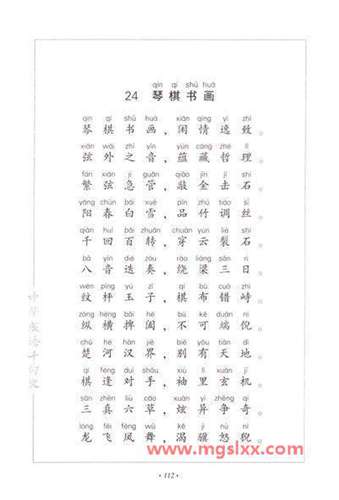 qín qí shū huà
24 琴棋书画
qín qí shū huà xián qíng yì zhì
琴棋书画,闲情逸致。
xián wài zhī yīn yùn cáng zhé lǐ
弦外之音,蕴藏哲理。
fán xián jí guǎn qiāo jīn jī shí
繁弦急管,敲金击石。
yáng chūn bái xuě pǐn zhú tiáo sī
阳春白雪,品竹调丝。
qiān huí bǎi zhuǎn chuān yún liè shí
千回百转,穿云裂石。
bā yīn dié zòu rào liáng sān rì
八音迭奏,绕梁三日。
wén píng yù zǐ qí bù cuò zhì
纹枰玉子,棋布错峙。
zòng héng bǎi hé bù kě duān ní
纵横捭阖,不可端倪。
chǔ hé hàn jiè bié yǒu tiān dì
楚河汉界,别有天地。
qí féng duì shǒu xiù lǐ xuán jī
棋逢对手,袖里玄机。
sān zhēn liù cǎo xuàn yì zhēng qí
三真六草,炫异争奇。
lóng fēi fèng wǔ kě jì nù ní
龙飞凤舞,渴骥怒猊。
www.mgslxx.com
·112·